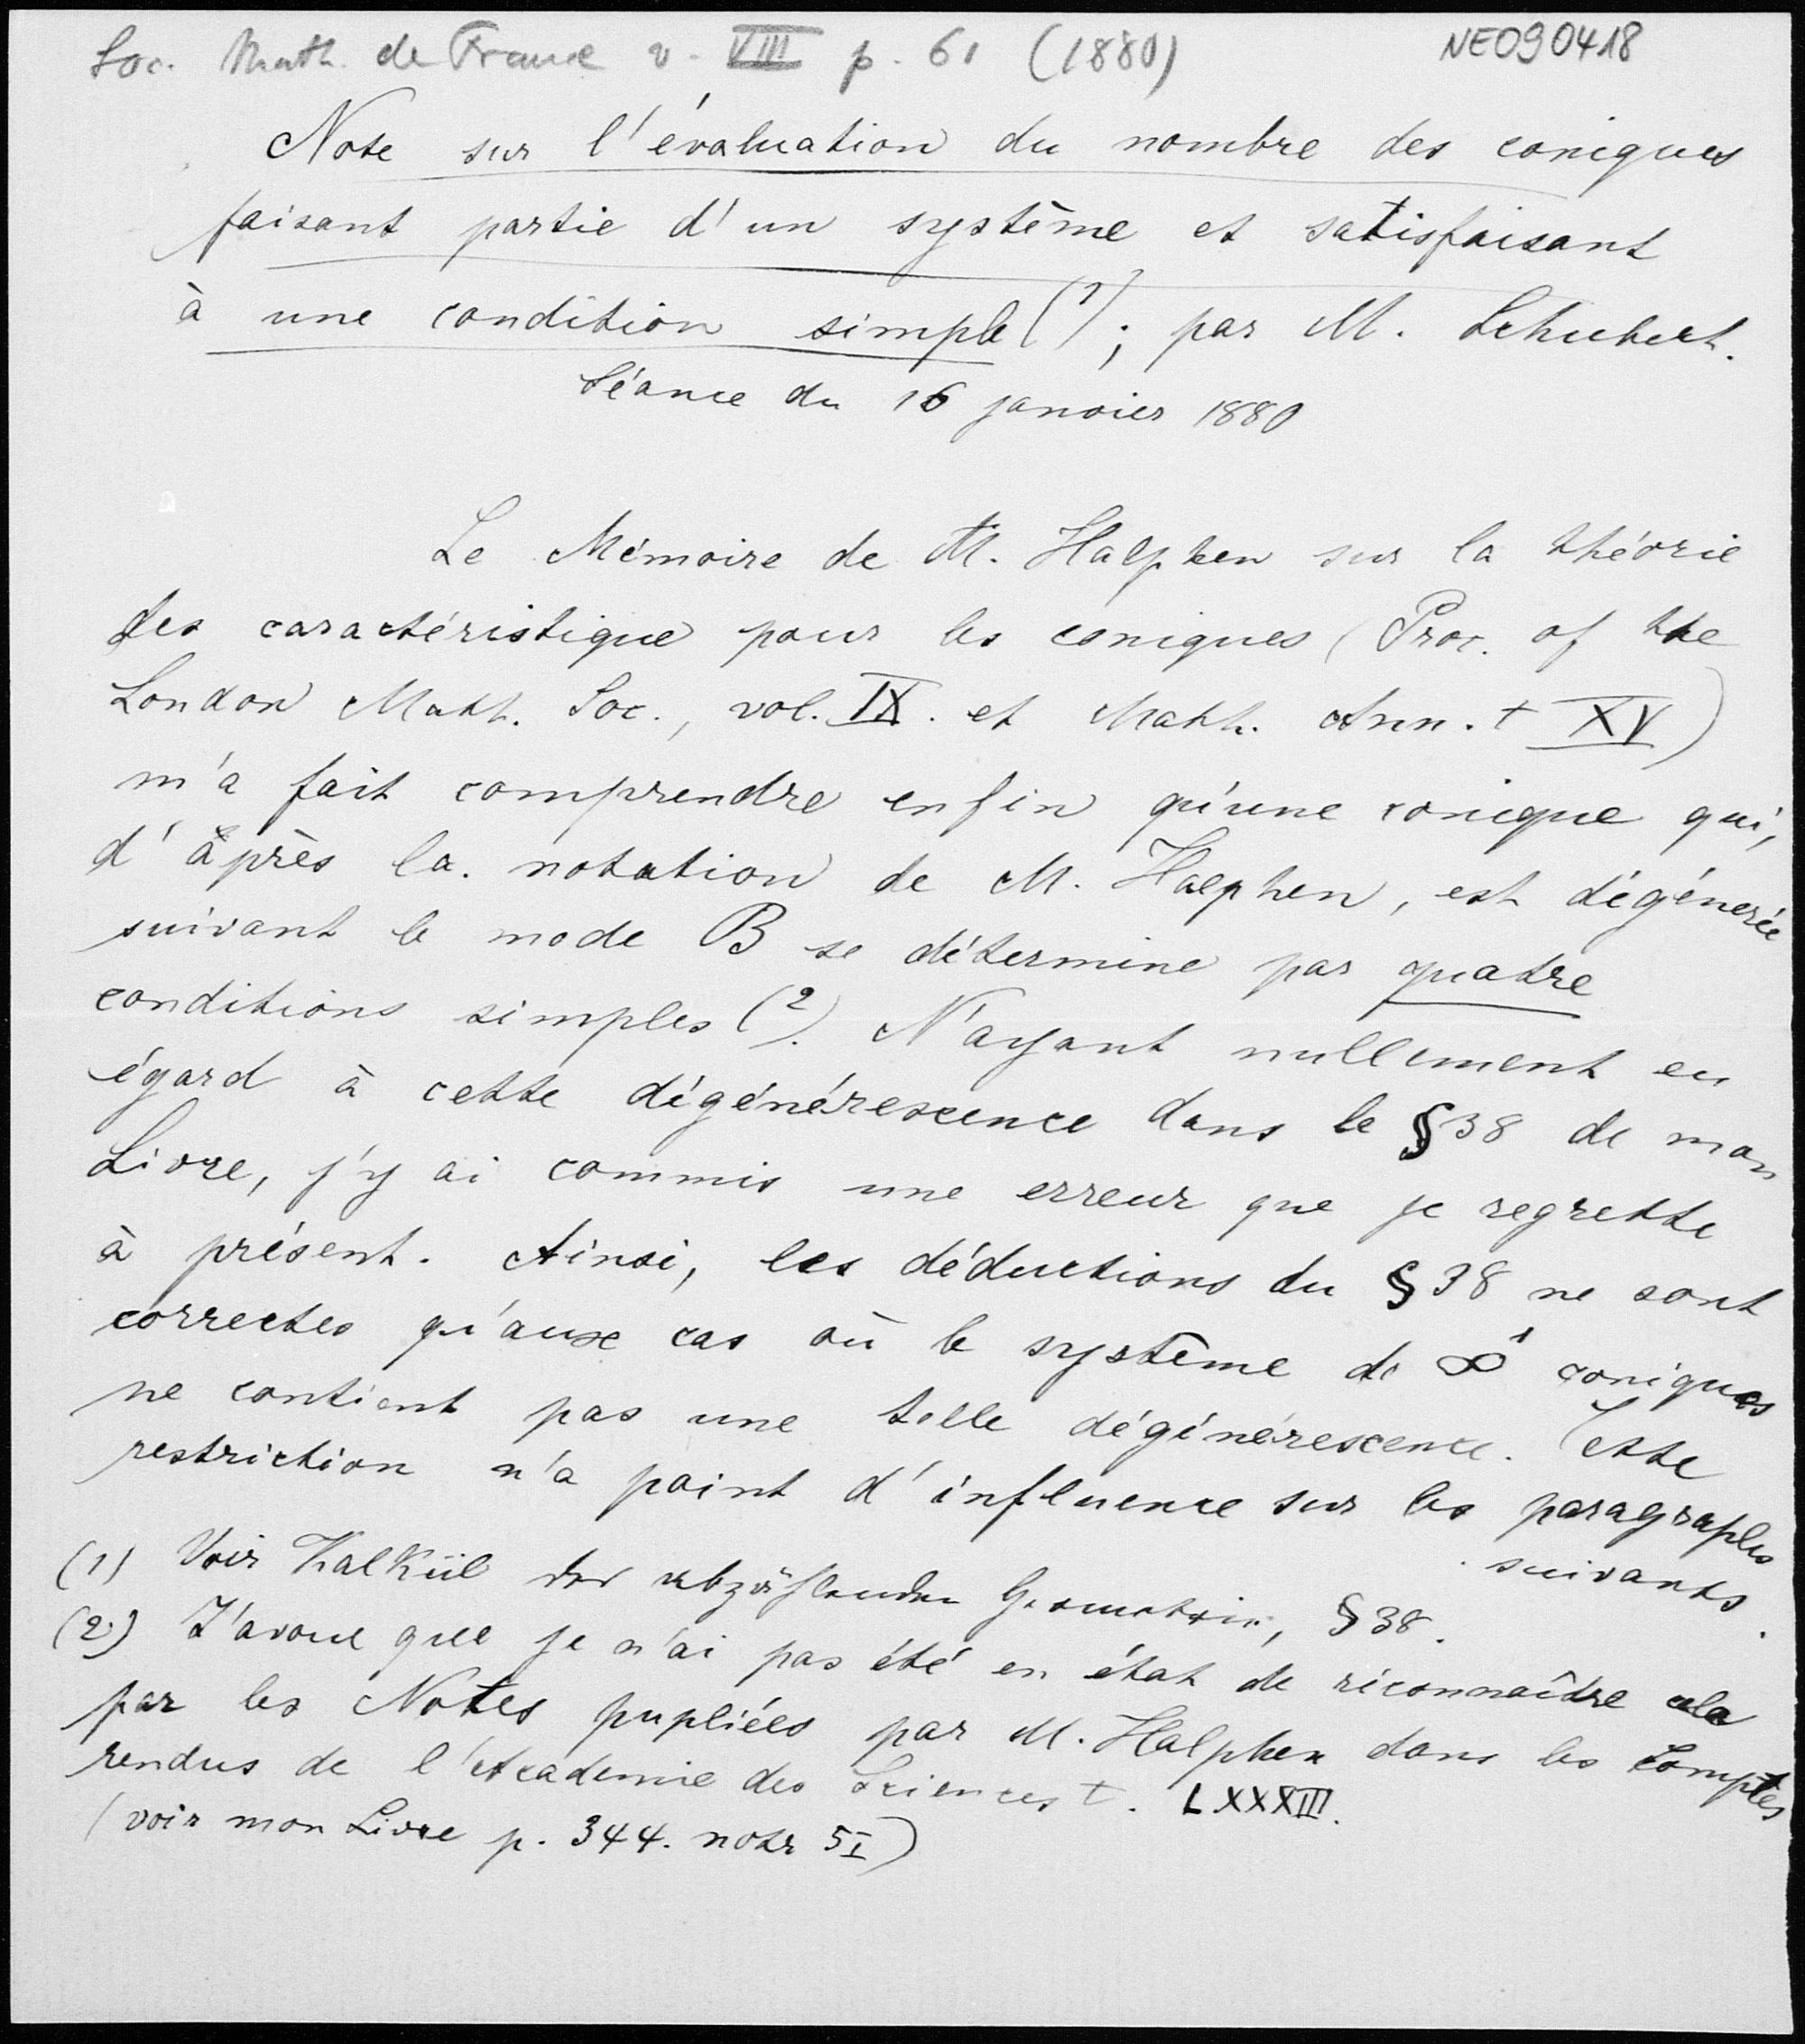 Soc. Math. de France v. VIII p. 61 (1880)
NE090418
Note sur l'évaluation du nombre des coniques
faisant partie d'un système et satisfaisant
à une condition simple (1); par M. Schubert.
Séance du 16 janvier 1880
Le Mémoire de M. Halphen sur la théorie
des caractéristique pour les coniques (Proc. of the
London Math. Soc., vol. IX. et Math. Ann. t XV)
m'a fait comprendre enfin qu'une conique qui,
d'après la notation de M. Halphen, est dégénerée
suivant le mode B se détermine par quatre
conditions simples (2). N'ayant nullement eu
égard à cette dégénérescence dans le §38 de mon
Livre, j'y ai commis une erreur que je regrette
à présent. Ainsi, les déductions du §38 ne sont
correctes qu'aux cas où le système de ∞¹ coniques
ne contient pas une telle dégénérescence. Cette
restriction n'a point d'influence sur les paragraphes
suivants.
(1) Voir Kalkül der abzählenden Geometrie, §38.
(2) J'avoue que je n'ai pas été en état de reconnaître cela
par les Notes pupliées par M. Halphen dans les Comptes
rendus de l'Academie des Sciences t. LXXXIII.
(voir mon Livre p. 344. note 51)